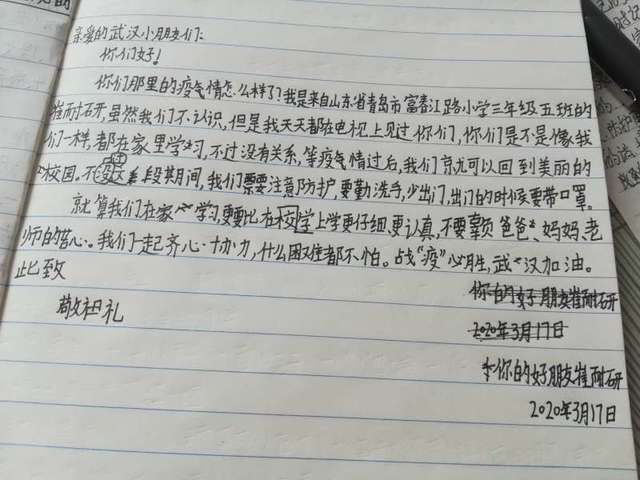 亲爱的武汉小朋友们:
你们好!
你们那里的疫气情怎么样了?我是来自山东省青岛市富春江路小学三年级五班的
崔耐研,虽然我们不认识,但是我天天都在电视上见过你们,你们是不是像我
们一样,都在家里学习,不过没有关系,等疫气情过后,我们京尤可以回到美丽的
校园。不过这段其期间,我们需要注意防护,要勤洗手,少出门,出门的时候要带口罩。
就算我们在家学习,更要比在校园上学更仔细、更认真,不要辜负爸爸、妈妈、老
师的苦心。我们一起齐心协力,什么困难都不怕。战“疫”必胜,武汉加油。
此致
敬礼
你的好朋友崔耐研
2020年3月17日
你的好朋友崔耐研
2020年3月17日